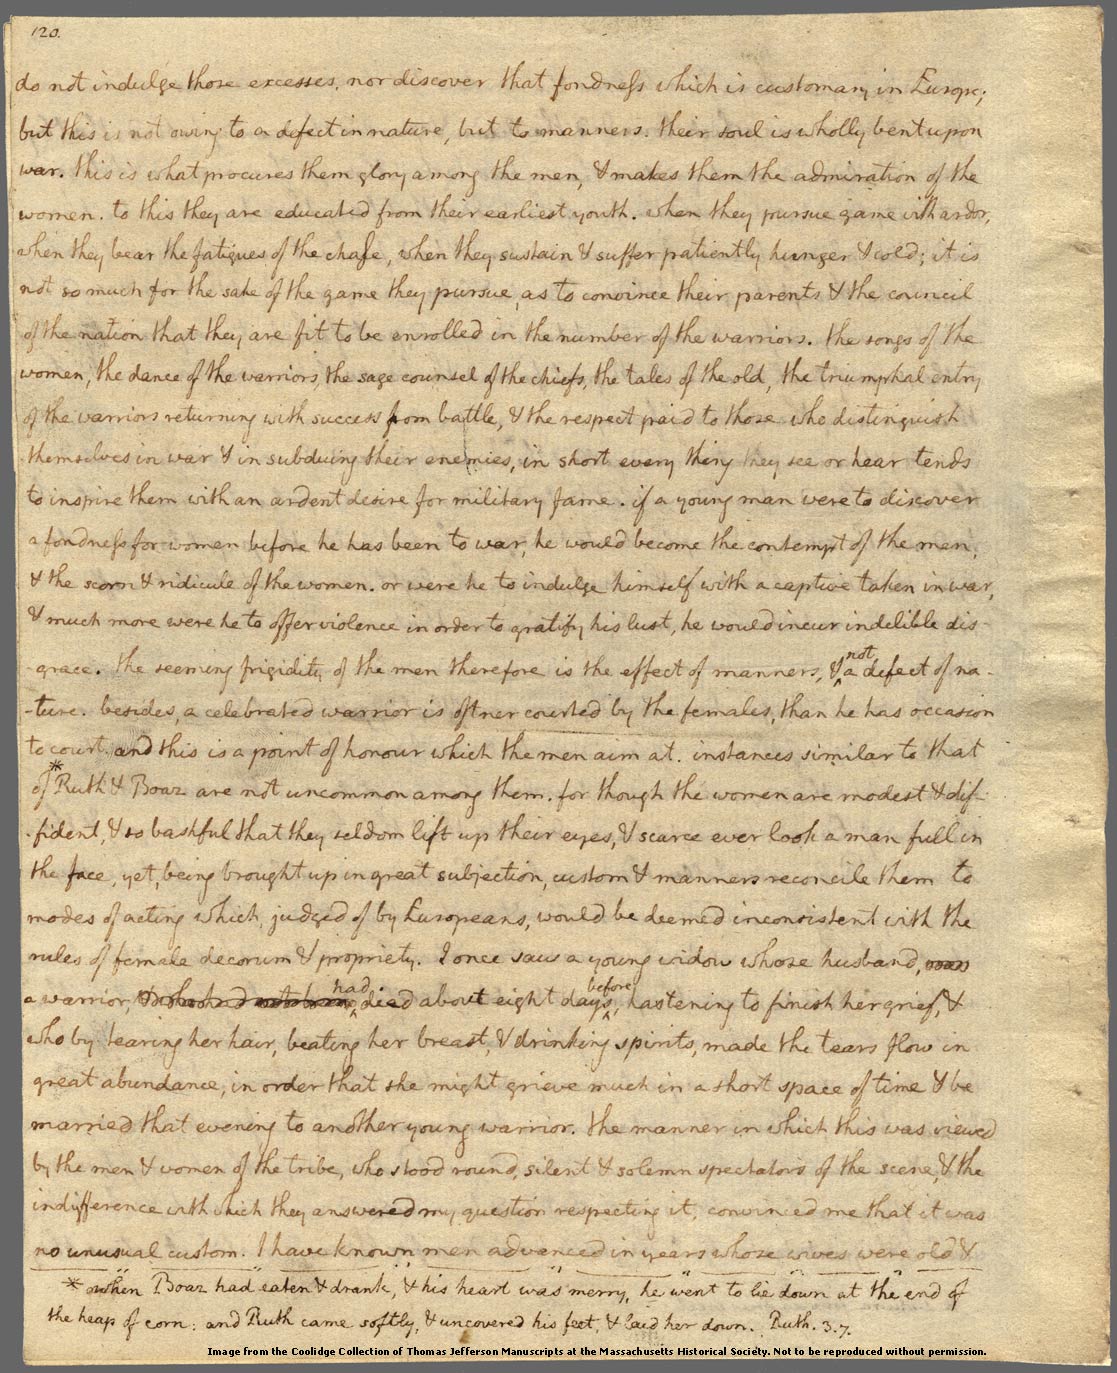 120.
do not indulge those excesses, nor discover that fondness which is customary in Europe;
but this is not owing to a defect in nature, but to manners. their soul is wholly bent upon
war. this is what procures them glory among the men, & makes them the admiration of the
women. to this they are educated from their earliest youth. when they pursue game with ardor,
when they bear the fatigues of the chase, when they sustain & suffer patiently hunger & cold; it is
not so much for the sake of the game they pursue, as to convince their parents & the council
of the nation that they are fit to be enrolled in the number of the warriors. the songs of the
women, the dance of the warriors, the sage counsel of the chiefs, the tales of the old, the triumphal entry
of the warriors returning with success from battle, & the respect paid to those who distinguish
themselves in war & in subduing their enemies, in short every thing they see or hear tends
to inspire them with an ardent desire for military fame. if a young man were to discover
a fondness for women before he has been to war, he would become the contempt of the men,
& the scorn & ridicule of the women. or were he to indulge himself with a captive taken in war,
& much more were he to offer violence in order to gratify his lust, he would incur indelible dis-
-grace. the seeming frigidity of the men therefore is the effect of manners, & not a defect of na-
-ture. besides, a celebrated warrior is oftner courted by the females, than he has occasion
to court. and this is a point of honour which the men aim at. instances similar to that
of *Ruth & Boaz are not uncommon among them. for though the women are modest & dif-
-fident, & so bashful that they seldom lift up their eyes, & scarce ever look a man full in
the face, yet, being brought up in great subjection, custom & manners reconcile them to
modes of acting which, judged of by Europeans, would be deemed inconsistent with the
rules of female decorum & propriety. I once saw a young widow whose husband, was
a warrior, had died about eight days before, hastening to finish her grief, &
who by tearing her hair, beating her breast, & drinking spirits, made the tears flow in
great abundance, in order that she might grieve much in a short space of time & be
married that evening to another young warrior. the manner in which this was viewed
by the men & women of the tribe, who stood round, silent & solemn spectators of the scene, & the
indifference with which they answered my question respecting it, convinced me that it was
no unusual custom. I have known men advanced in years whose wives were old &
* when Boaz had eaten & drank, & his heart was merry, he went to lie down at the end of
the heap of corn: and Ruth came softly, & uncovered his feet, & laid her down. Ruth. 3.7.
Image from the Coolidge Collection of Thomas Jefferson Manuscripts at the Massachusetts Historical Society. Not to be reproduced without permission.